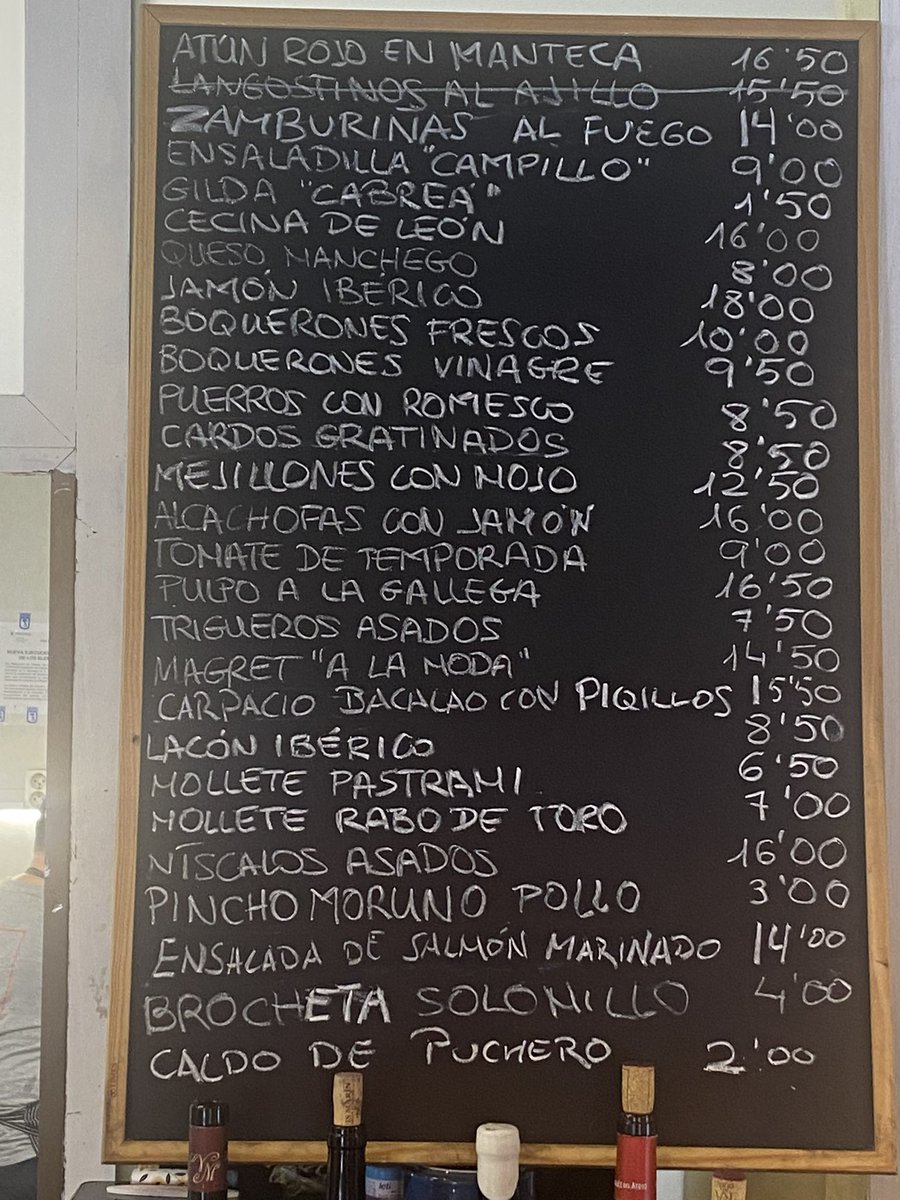 ATÚN ROJO EN MANTECA 16'50
LANGOSTINOS AL AJILLO 15'50
ZAMBURINAS AL FUEGO 14'00
ENSALADILLA "CAMPILLO" 9'00
GILDA "CABREÁ" 1'50
CECINA DE LEÓN 16'00
QUESO MANCHEGO 8'00
JAMÓN IBÉRICO 18'00
BOQUERONES FRESCOS 10'00
BOQUERONES VINAGRE 9'50
PUERROS CON ROMESCO 8'50
CARDOS GRATINADOS 8'50
MEJILLONES CON MOJO 12'50
ALCACHOFAS CON JAMÓN 16'00
TOMATE DE TEMPORADA 9'00
PULPO A LA GALLEGA 16'50
TRIGUEROS ASADOS 7'50
MAGRET "A LA MODA" 14'50
CARPACIO BACALAO CON PIQILLOS 15'50
LACÓN IBÉRICO 8'50
MOLLETE PASTRAMI 6'50
MOLLETE RABO DE TORO 7'00
NÍSCALOS ASADOS 16'00
PINCHO MORUNO POLLO 3'00
ENSALADA DE SALMÓN MARINADO 14'00
BROCHETA SOLOMILLO 4'00
CALDO DE PUCHERO 2'00